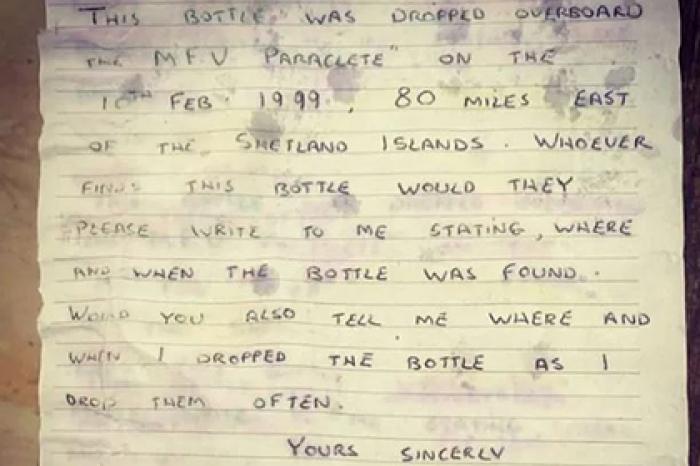 THIS BOTTLE WAS DROPPED OVERBOARD
THE "MFV PARACLETE" ON THE
10TH FEB. 1999, 80 MILES EAST
OF THE SHETLAND ISLANDS. WHOEVER
FINDS THIS BOTTLE WOULD THEY
PLEASE WRITE TO ME STATING, WHERE
AND WHEN THE BOTTLE WAS FOUND.
WOULD YOU ALSO TELL ME WHERE AND
WHEN I DROPPED THE BOTTLE AS I
DROP THEM OFTEN.
YOURS SINCERLY